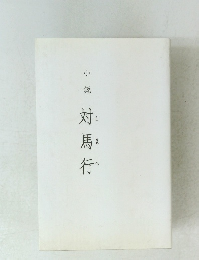 小説
対馬行